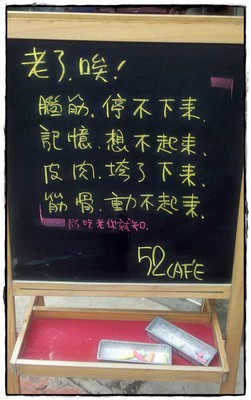 老了.唉!
腦筋.停不下来.
記憶.想不起来.
皮肉.垮了下来.
筋骨.動不起来.
PS 吃老你就知.
52 CAFE